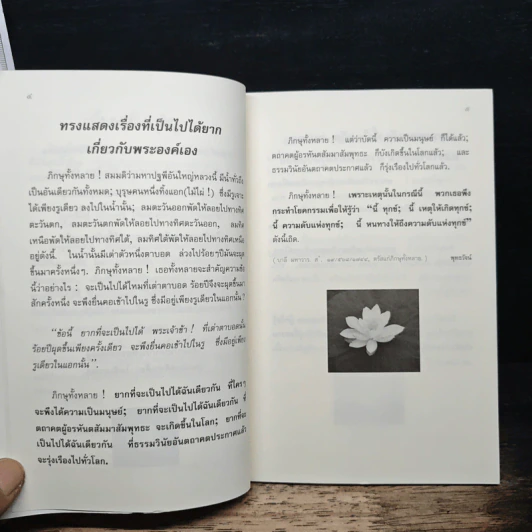 ๔
ทรงแสดงเรื่องที่เป็นไปได้ยาก
เกี่ยวกับพระองค์เอง
ภิกษุทั้งหลาย ! สมมติว่ามหาปฐพีอันใหญ่หลวงนี้ มีน้ำทั่วถึง
เป็นอันเดียวกันทั้งหมด; บุรุษคนหนึ่งทิ้งแอก(ไม้ไผ่ !) ซึ่งมีรูเจาะ
ได้เพียงรูเดียว ลงไปในน้ำนั้น; ลมตะวันออกพัดให้ลอยไปทางทิศ
ตะวันตก, ลมตะวันตกพัดให้ลอยไปทางทิศตะวันออก, ลมทิศ
เหนือพัดให้ลอยไปทางทิศใต้, ลมทิศใต้พัดให้ลอยไปทางทิศเหนือ
อยู่ดังนี้. ในน้ำนั้นมีเต่าตัวหนึ่งตาบอด ล่วงไปร้อยๆปีมันจะผุด
ขึ้นมาครั้งหนึ่งๆ. ภิกษุทั้งหลาย ! เธอทั้งหลายจะสำคัญความข้อ
นี้ว่าอย่างไร : จะเป็นไปได้ไหมที่เต่าตาบอด ร้อยปีจึงจะผุดขึ้น
สักครั้งหนึ่ง จะพึงยื่นคอเข้าไปในรู ซึ่งมีอยู่เพียงรูเดียวในแอกนั้น ?
“ข้อนี้ ยากที่จะเป็นไปได้ พระเจ้าข้า ! ที่เต่าตาบอดนั้น
ร้อยปีผุดขึ้นเพียงครั้งเดียว จะพึงยื่นคอเข้าไปในรู ซึ่งมีอยู่เพียง
รูเดียวในแอกนั้น”.
ภิกษุทั้งหลาย ! ยากที่จะเป็นไปได้ฉันเดียวกัน ที่ใครๆ
จะพึงได้ความเป็นมนุษย์; ยากที่จะเป็นไปได้ฉันเดียวกัน ที่
ตถาคตผู้อรหันตสัมมาสัมพุทธะ จะเกิดขึ้นในโลก; ยากที่จะ
เป็นไปได้ฉันเดียวกัน ที่ธรรมวินัยอันตถาคตประกาศแล้ว
จะรุ่งเรืองไปทั่วโลก.
ภิกษุทั้งหลาย ! แต่ว่าบัดนี้ ความเป็นมนุษย์ ก็ได้แล้ว;
ตถาคตผู้อรหันตสัมมาสัมพุทธะ ก็บังเกิดขึ้นในโลกแล้ว; และ
ธรรมวินัยอันตถาคตประกาศแล้ว ก็รุ่งเรืองไปทั่วโลกแล้ว.
ภิกษุทั้งหลาย ! เพราะเหตุนั้นในกรณีนี้ พวกเธอพึง
กระทำโยคกรรมเพื่อให้รู้ว่า “นี้ ทุกข์; นี้ เหตุให้เกิดทุกข์;
นี้ ความดับแห่งทุกข์; นี้ หนทางให้ถึงความดับแห่งทุกข์”
ดังนี้เถิด.
พุทธวจน์